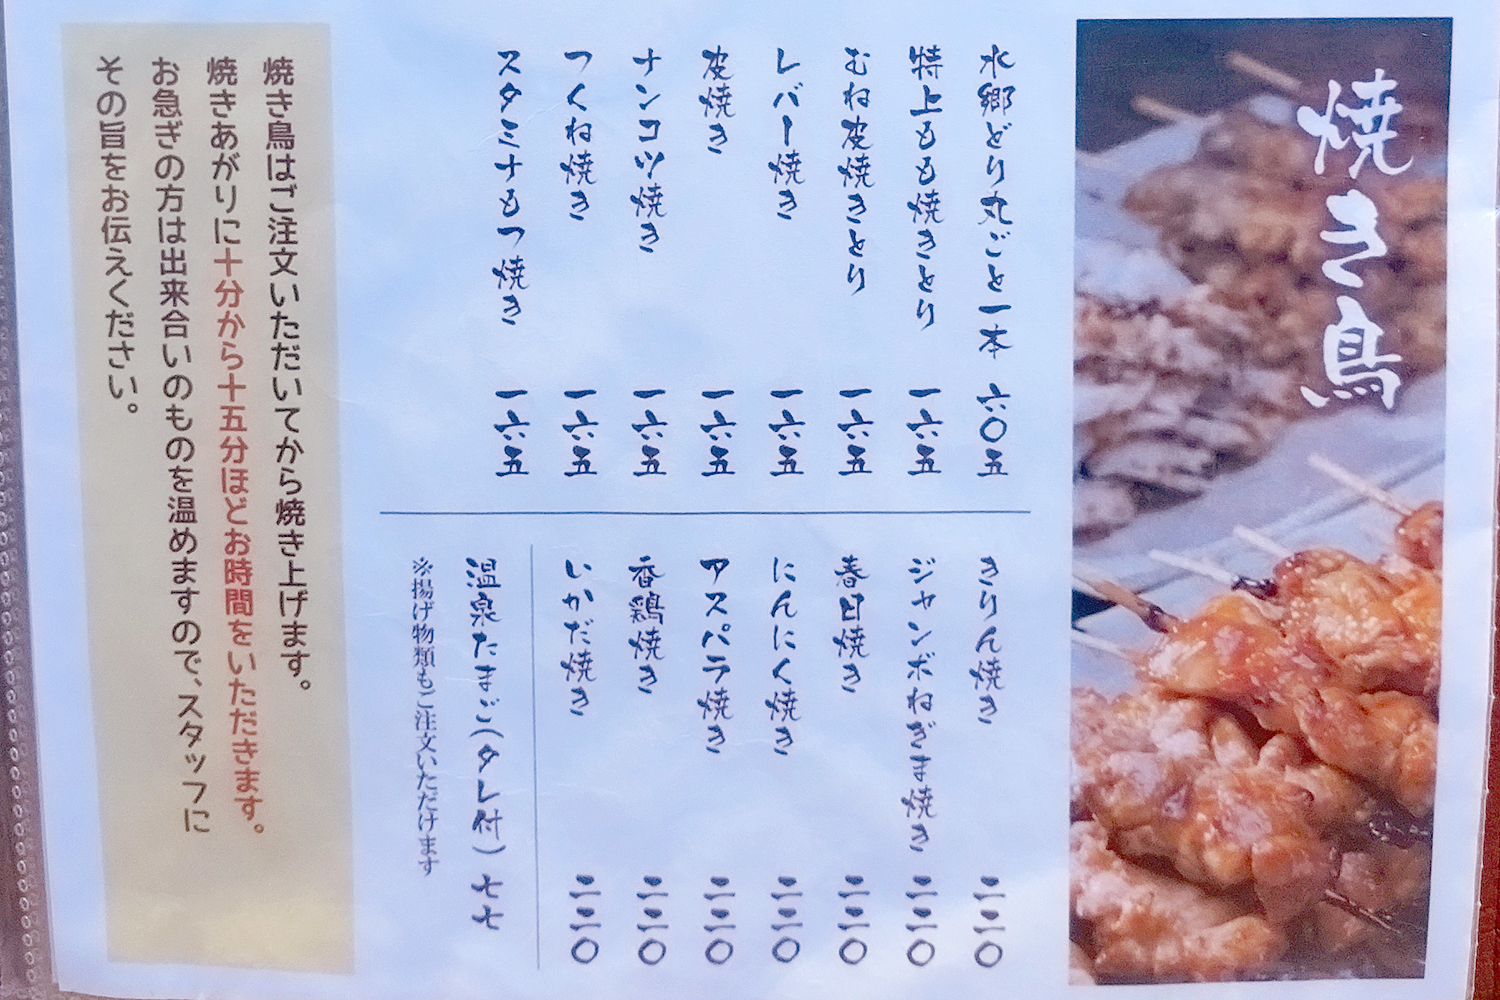 焼き鳥
水郷どり丸ごと一本 六〇五
特上もも焼きとり 一六五
むね皮焼きとり 一六五
レバー焼き 一六五
皮焼き 一六五
ナンコツ焼き 一六五
つくね焼き 一六五
スタミナもつ焼き 一六五
きりん焼き 二二〇
ジャンボねぎま焼き 二二〇
春日焼き 二二〇
にんにく焼き 二二〇
アスパラ焼き 二二〇
香鶏焼き 二二〇
いかだ焼き 二二〇
温泉たまご(タレ付) 七七
※揚げ物類もご注文いただけます
焼き鳥はご注文いただいてから焼き上げます。
焼きあがりに十分から十五分ほどお時間をいただきます。
お急ぎの方は出来合いのものを温めますので、スタッフに
その旨をお伝えください。